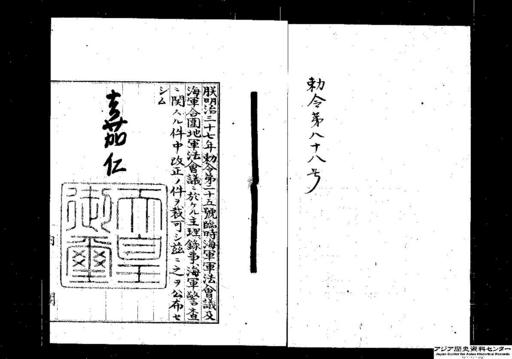 勅令第八十八号
朕明治三十七年勅令第二十五號臨時海軍軍法會議及
海軍合圍地軍法會議ニ於ケル主理錄事海軍警査
ニ関スル件中改正ノ件ヲ裁可シ茲ニ之ヲ公布セ
シム
嘉仁
天皇
御璽
アジア歴史資料センター
Japan Center for Asian Historical Records